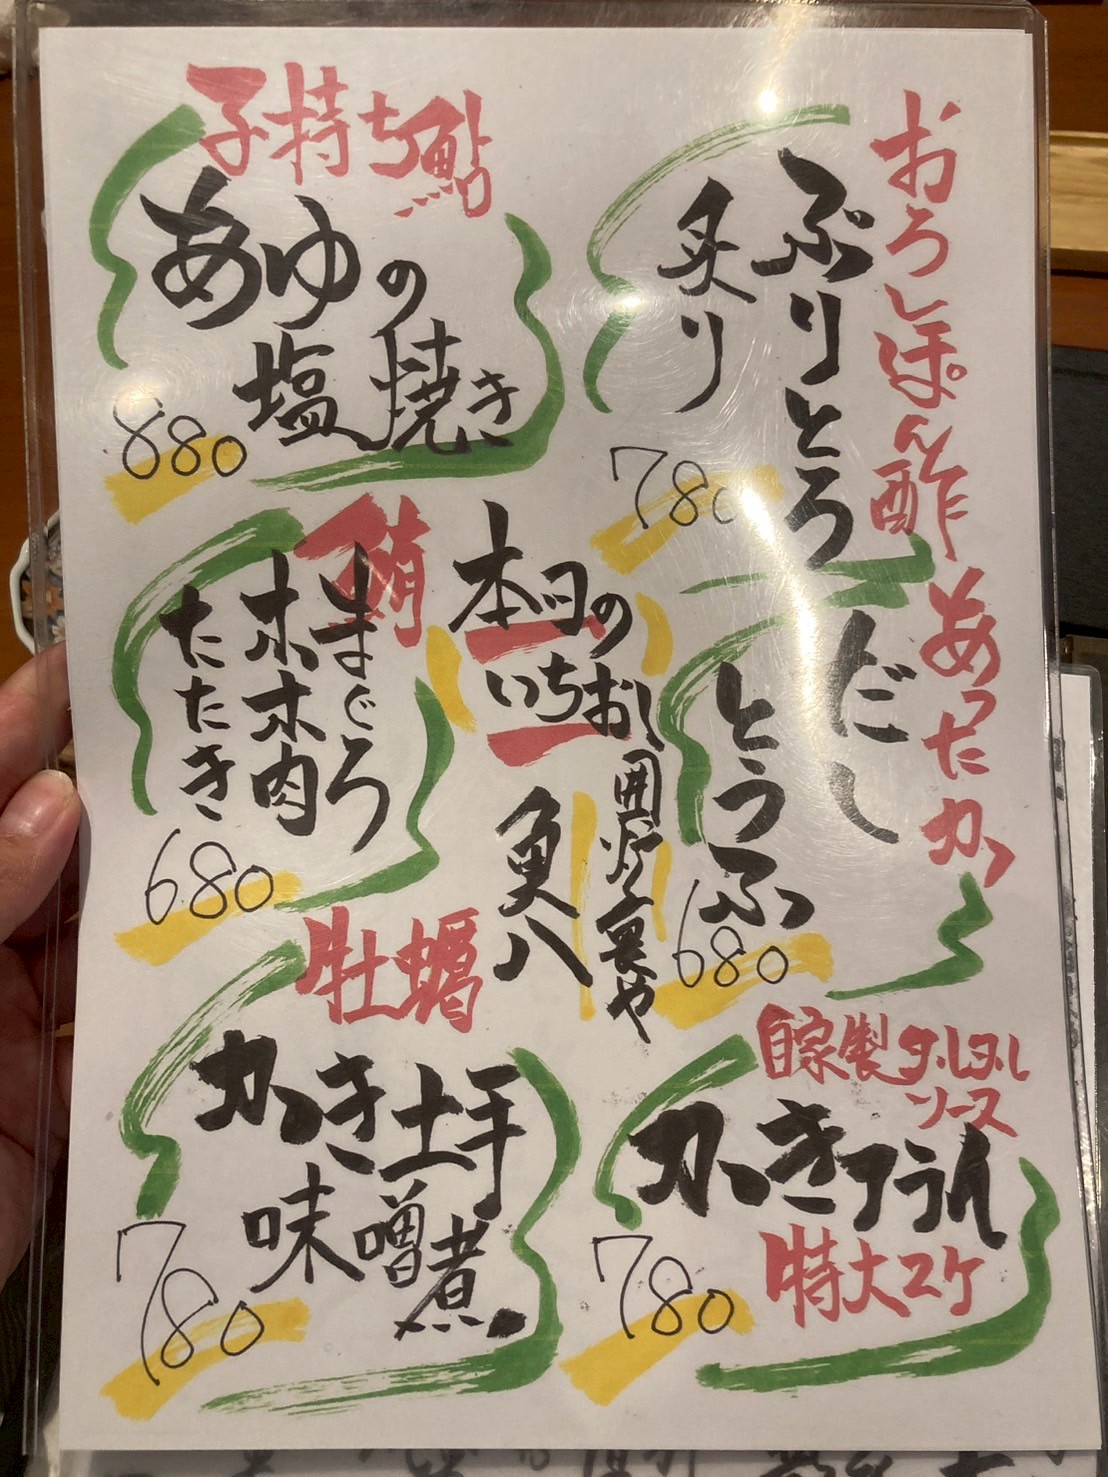 おろしぽん酢
ぶりとろ
炙り
780
子持ち鮎
あゆの
塩焼き
880
本日の
いちおし
囲炉裏や
魚八
あったか
だし
とうふ
680
鮪
まぐろ
ホホ肉
たたき
680
牡蠣
かき土手
味噌煮
780
自家製タルタル
ソース
かきフライ
特大2ケ
780